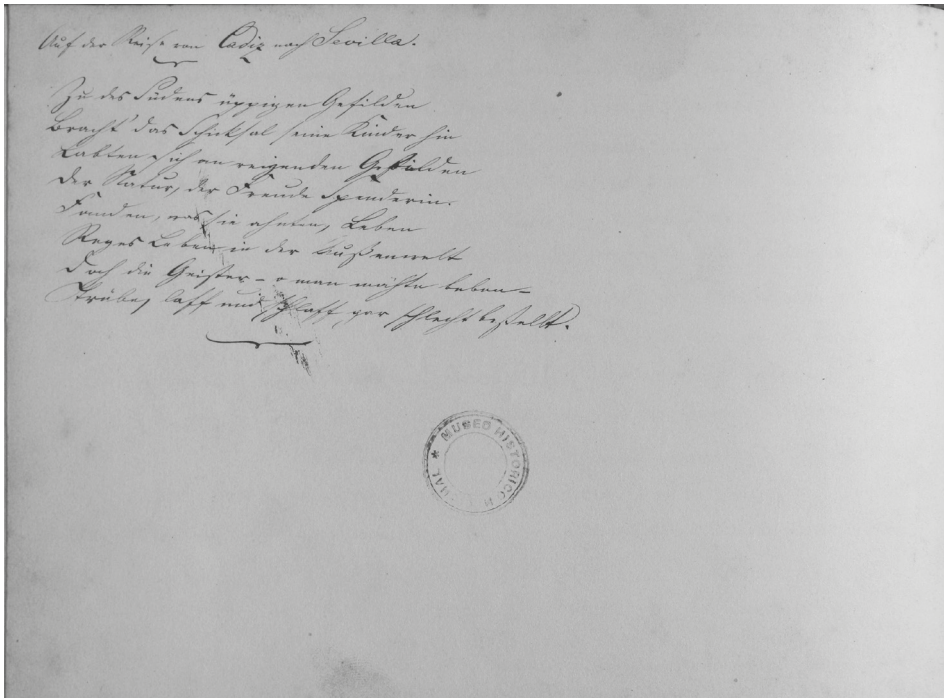 Auf der Reise von Cadiz nach Sevilla.
Zu des Südens üppigen Gefilden
Bracht' das Schicksal seine Kinder hin
Labten sich an reizenden Gebilden
Der Natur, der Freude Spenderin.
Fanden, was sie ahnten, Leben
Reges Leben in der Außenwelt
Doch die Geister – o man möchte beben –
Trübe, laff und schlaff, gar schlecht bestellt.
MUSEO HISTORICO N